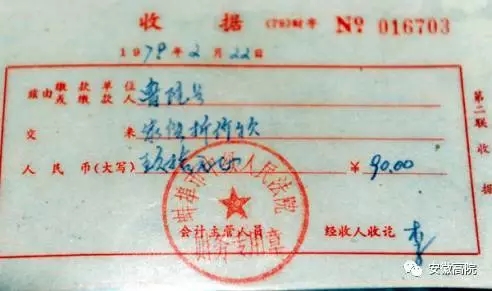 收据 (78)财字 № 016703
1979年2月22日
兹由缴款单位
或缴款人
交来 家俱折价款
人民币(大写) ¥ 90.00
蚌埠市 人民法院
财务专用章
会计主管人员 经收人收讫 李
第二联收据
安徽高院